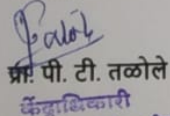 प्रा. पी. टी. तळोले
केंद्राधिकारी